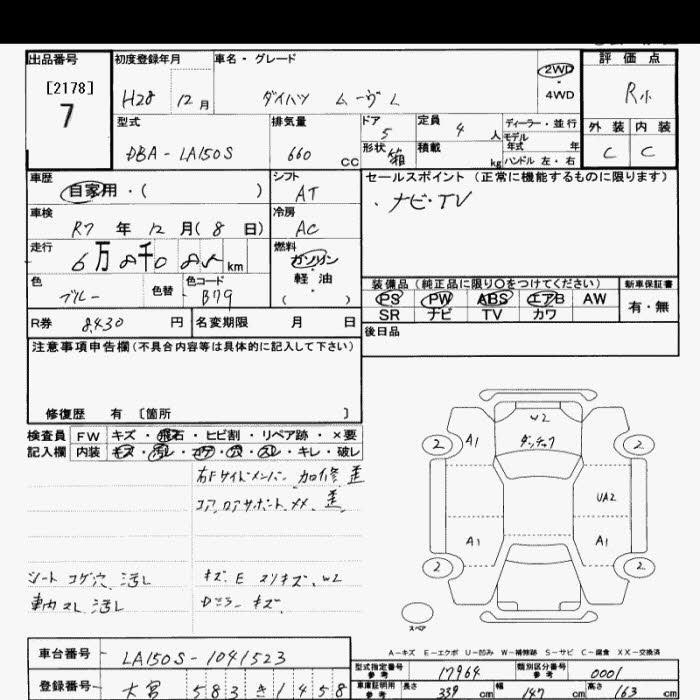 出品番号
[2178]
7
初度登録年月
H28 12月
車名・グレード
ダイハツ ムーヴ L
2WD
・
4WD
評価点
R小
外装 内装
C C
型式
DBA-LA150S
排気量
660 CC
ドア
5
形状
箱
定員
4 人
積載
kg
ディーラー・並行
モデル
年式 年
ハンドル 左・右
車歴
自家用・( )
シフト
AT
セールスポイント(正常に機能するものに限ります)
・ナビ・TV
車検
R7年12月(8日)
冷房
AC
走行
6万8千085km
燃料
ガソリン
・
軽油
( )
色
ブルー
色替
色コード
B79
装備品(純正品に限り○をつけてください)
PS PW ABS エアB AW
SR ナビ TV カワ
新車保証書
有・無
R券 8,430 円
名変期限 月 日
後日品
注意事項申告欄(不具合内容等は具体的に記入して下さい)
修復歴 有〔箇所 〕
検査員
記入欄
FW キズ・飛石・ヒビ割・リペア跡・×要
内装 キズ・汚レ・コゲ・穴・スレ・キレ・破レ
右Fサイドメンバー 加修 歪
コア、ロアサポート 〆〆 歪
シート コゲ穴、汚レ
車内 スレ 汚レ
キズ、E スリキズ、W2
Dミラー キズ
W2
ダッチェック
2
A1
2
UA2
A1
A1
2
2
スペア
A-キズ E-エクボ U-凹み W-補修跡 S-サビ C-腐食 XX-交換済
車台番号 LA150S-1041523
型式指定番号
参考
17964
類別区分番号
参考
0001
登録番号 大宮 583 き 1458
車庫証明用
参考
長さ 339 cm 幅 147 cm 高さ 163 cm